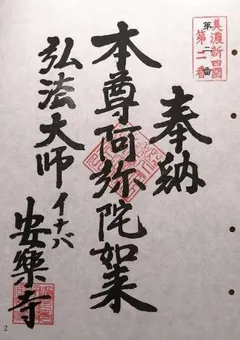 美濃新四國
第二番
奉納
本尊阿弥陀如来
弘法大師
イナバ
安樂寺
2